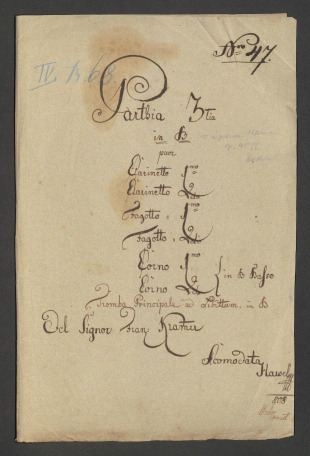 Nro 47.
IV. B. 68.
Parthia 3tia
in B
pour
Clarinetto 1mo
Clarinetto 2do
Fagotto 1mo
Fagotto 2do
Corno 1mo
Corno 2do in B Basso
Tromba Principale ad Libittum, in B
Del Signor Fran: Kramer
Acomodata
Havel
808